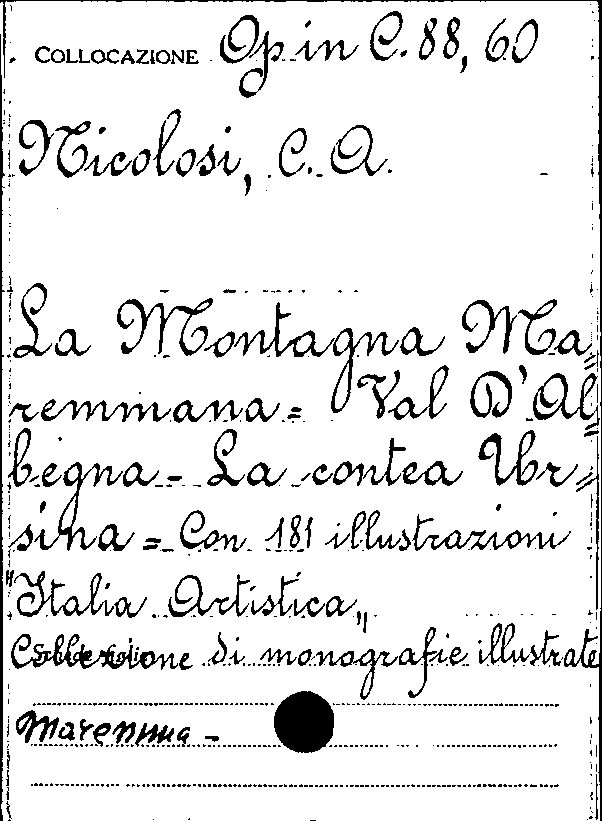 COLLOCAZIONE Op in C. 88, 60
Nicolosi, C. A.
La Montagna Ma=
remmana = Val D'Al=
begna - La contea Ur=
sina = Con 181 illustrazioni
"Italia Artistica„
Collezione di monografie illustrate
Maremma -